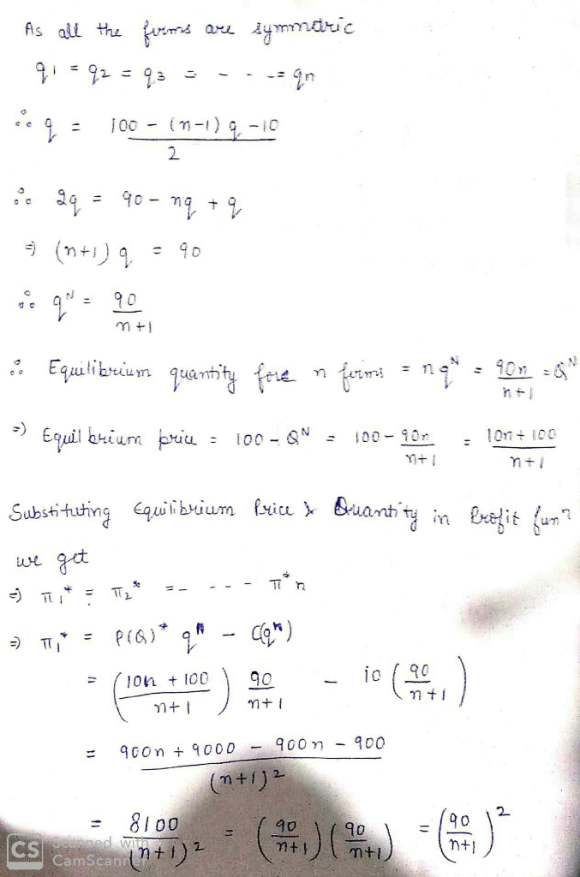 As all the firms are symmetric
q1 = q2 = q3 = - - - = qn
∴ q = (100 - (n-1) q - 10) / 2
∴ 2q = 90 - nq + q
⇒ (n+1) q = 90
∴ q^N = 90 / (n+1)
∴ Equilibrium quantity for n firms = nq^N = 90n / (n+1) = Q^N
⇒ Equilibrium price = 100 - Q^N = 100 - 90n / (n+1) = (10n + 100) / (n+1)
Substituting Equilibrium Price & Quantity in Profit funⁿ
we get
⇒ π1* = π2* = - - - - π*n
⇒ π1* = P(Q)* q^N - C(q^N)
= ((10n + 100) / (n+1)) 90 / (n+1) - 10 (90 / (n+1))
= (900n + 9000 - 900n - 900) / (n+1)²
= 8100 / (n+1)² = (90 / (n+1)) (90 / (n+1)) = (90 / (n+1))²
CS Scanned with
CamScanner